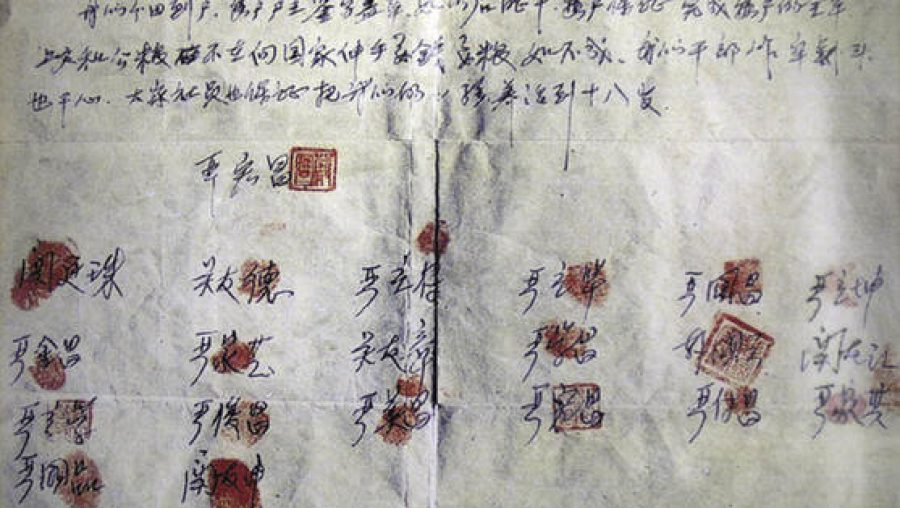 我们分田到户，每户户主签字盖章，如以后能干，每户保证完成每户的全年
上交和公粮不在向国家伸手要钱要粮如不成，我们干部作牢刹头
也干心，大家社员也保证把我们的小孩养活到十八岁
严宏昌
关廷珠 关友德 严立符 严立华 严国昌 严立坤
严金昌 严家芝 关友章 严学昌 韩国云 关友江
严立学 严俊昌 严美昌 严宏昌 严付昌 严家其
严国品 关友申